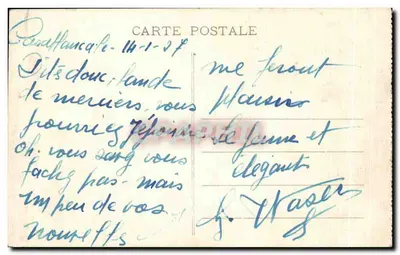 CARTE POSTALE
Casablanca le 14-1-37
Dites donc, bande
de merciers, vous
pourriez répondre
oh, vous vous
fachez pas - mais
un peu de vos
nouvelles
me feront
plaisir
Le jeune et
élégant